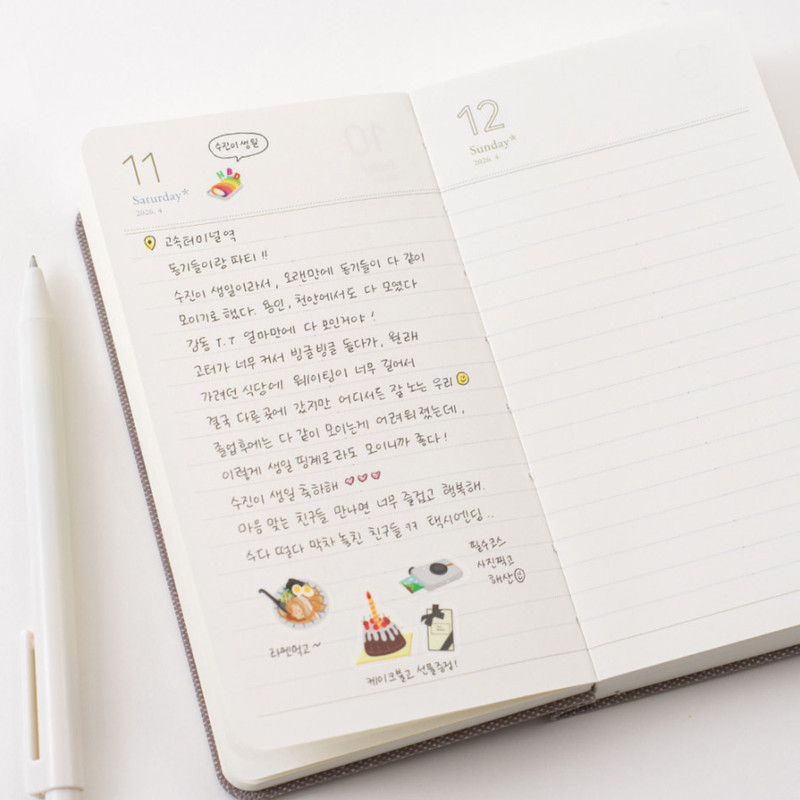 11
Saturday*
2026. 4
수진이 생일
HBD
고속터미널역
동기들이랑 파티!!
수진이 생일이라서, 오랜만에 동기들이 다 같이
모이기로 했다. 용인, 천안에서도 다 모였다
감동 T.T 얼마만에 다 모인거야!
고터가 너무 커서 빙글빙글 돌다가, 원래
가려던 식당에 웨이팅이 너무 길어서
결국 다른곳에 갔지만 어디서든 잘 노는 우리
졸업후에는 다 같이 모이는게 어려워졌는데,
이렇게 생일 핑계로라도 모이니까 좋다!
수진이 생일 축하해 ♡♡♡
마음 맞는 친구들 만나면 너무 즐겁고 행복해.
수다 떨다 막차 놓친 친구들 ㅋㅋ 택시엔딩..
필수코스
사진찍고
해산
라멘먹고~
케이크불고 선물증정!
12
Sunday*
2026. 4